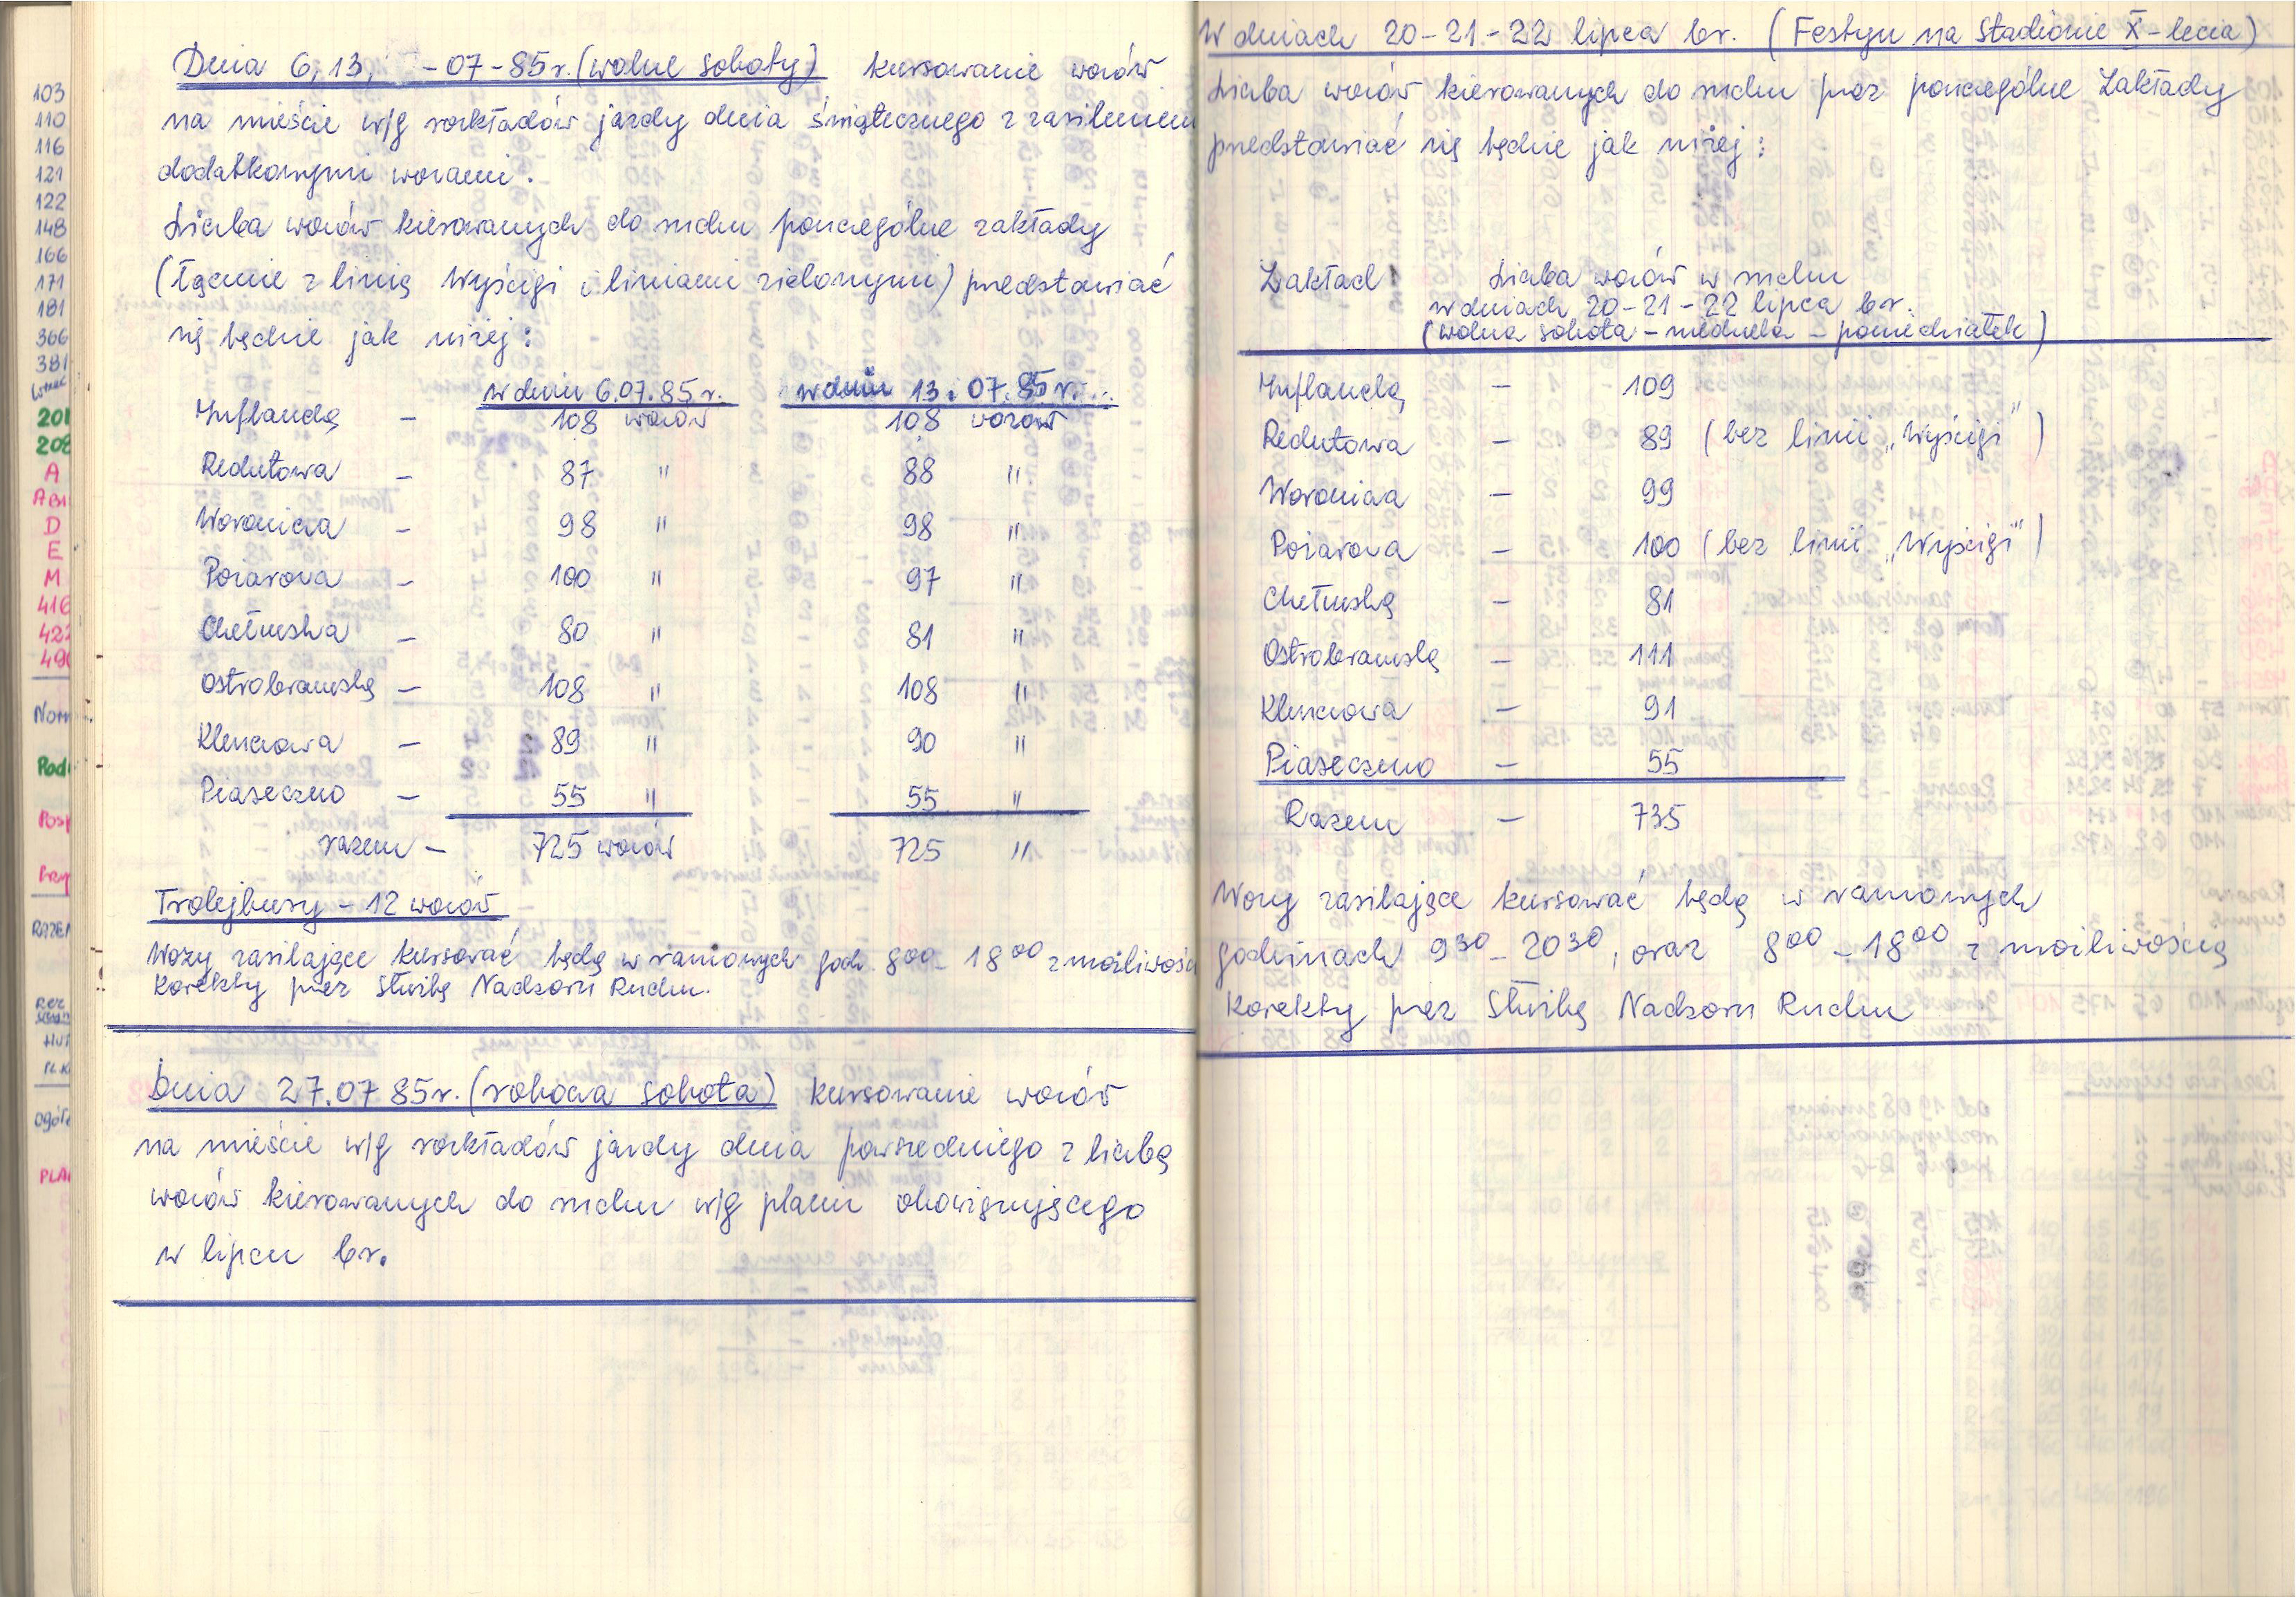 103
110
116
121
122
148
166
171
181
366
381
201
208
A
D
E
M
416
Dnia 6, 13, -07-85r. (wolne soboty) kursowanie wozów
na mieście w/g rozkładów jazdy dnia świątecznego z zasileniem
dodatkowymi wozami.
Liczba wozów kierowanych do ruchu poszczególne zakłady
(łącznie z linią Wyścigi i liniami zielonymi) przedstawiać
się będzie jak niżej:
w dniu 6.07.85r. w dniu 13.07.85r.
Inflancka - 108 wozów 108 wozów
Redutowa - 87 " 88 "
Woronicza - 98 " 98 "
Pożarowa - 100 " 97 "
Chełmska - 80 " 81 "
Ostrobramska - 108 " 108 "
Kleszczowa - 89 " 90 "
Piaseczno - 55 " 55 "
razem - 725 wozów 725 "
Trolejbusy - 12 wozów
Wozy zasilające kursować będą w ramowych godz. 8⁰⁰ - 18⁰⁰ z możliwością
korekty przez Służbę Nadzoru Ruchu.
Dnia 27.07 85r. (robocza sobota) kursowanie wozów
na mieście w/g rozkładów jazdy dnia powszedniego z liczbą
wozów kierowanych do ruchu w/g planu obowiązującego
w lipcu br.
W dniach 20-21-22 lipca br. (Festyn na Stadionie X-lecia)
Liczba wozów kierowanych do ruchu przez poszczególne Zakłady
przedstawiać się będzie jak niżej:
Zakład Liczba wozów w ruchu
w dniach 20-21-22 lipca br.
(wolna sobota - niedziela - poniedziałek)
Inflancka - 109
Redutowa - 89 (bez linii „Wyścigi")
Woronicza - 99
Pożarowa - 100 (bez linii „Wyścigi")
Chełmska - 81
Ostrobramska - 111
Kleszczowa - 91
Piaseczno - 55
Razem - 735
Wozy zasilające kursować będą w ramowych
godzinach 9³⁰ - 20³⁰, oraz 8⁰⁰ - 18⁰⁰ z możliwością
korekty przez Służbę Nadzoru Ruchu